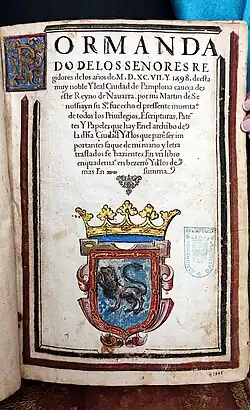 POR MANDA
DO DE LOS SENORES RE
gidores de los años de M. D. XC. VII. Y 1598. desta
muy noble Y leal Ciudad de Pamplona caueca de
este Reyno de Nauarra. por mi Martin de Se
nossiayn su Sº. fue echo el pressente inuenta°
de todos los Priuilegios, Escripturas, Pate
tes Y Papeles que hay En el archibo de
la dha Ciudad Y dlos que paresser im
portantes saque de mi mano y letra
traslados fe hazientes En vn libro
enquadernaº en bezerro Y dlos de
mas En summa